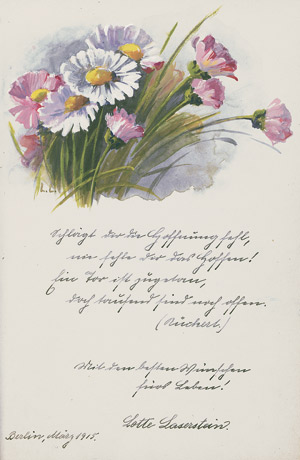 L. L.
Schlägt dir die Hoffnung fehl,
nie fehle dir das Hoffen!
Ein Tor ist zugetan,
doch tausend sind noch offen.
(Rückert.)
Mit den besten Wünschen
fürs Leben!
Lotte Laserstein.
Berlin, März 1915.